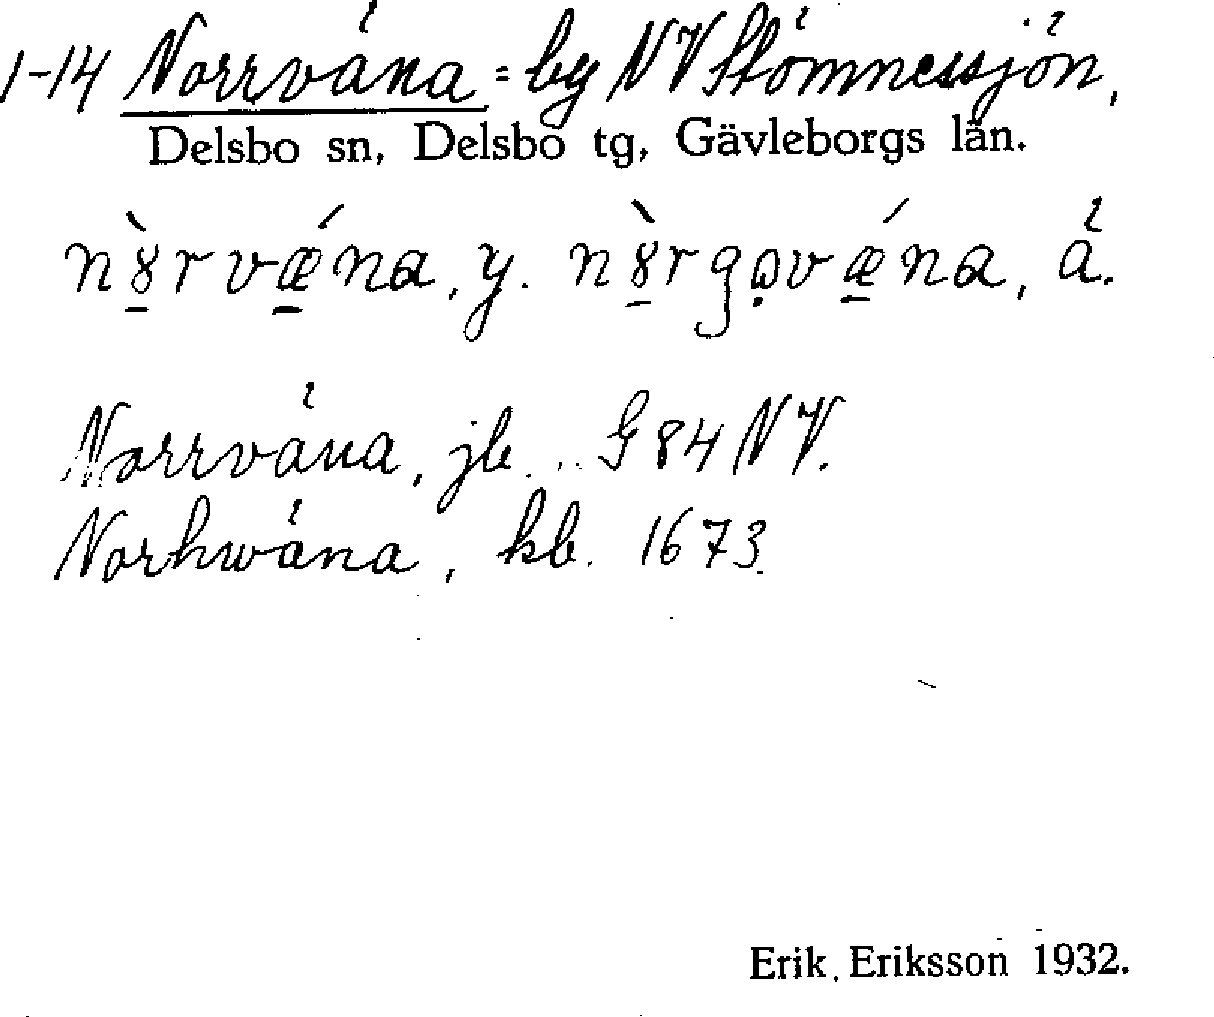 1-14 Norrväna = by NV Stömnessjön,
Delsbo sn, Delsbo tg, Gävleborgs län.
nò̱rvǽ̱na, y. nò̱rgǫvǽ̱na, ä.
Norrväna, jb. G 84 NV.
Norhwäna, kb. 1673
Erik Eriksson 1932.